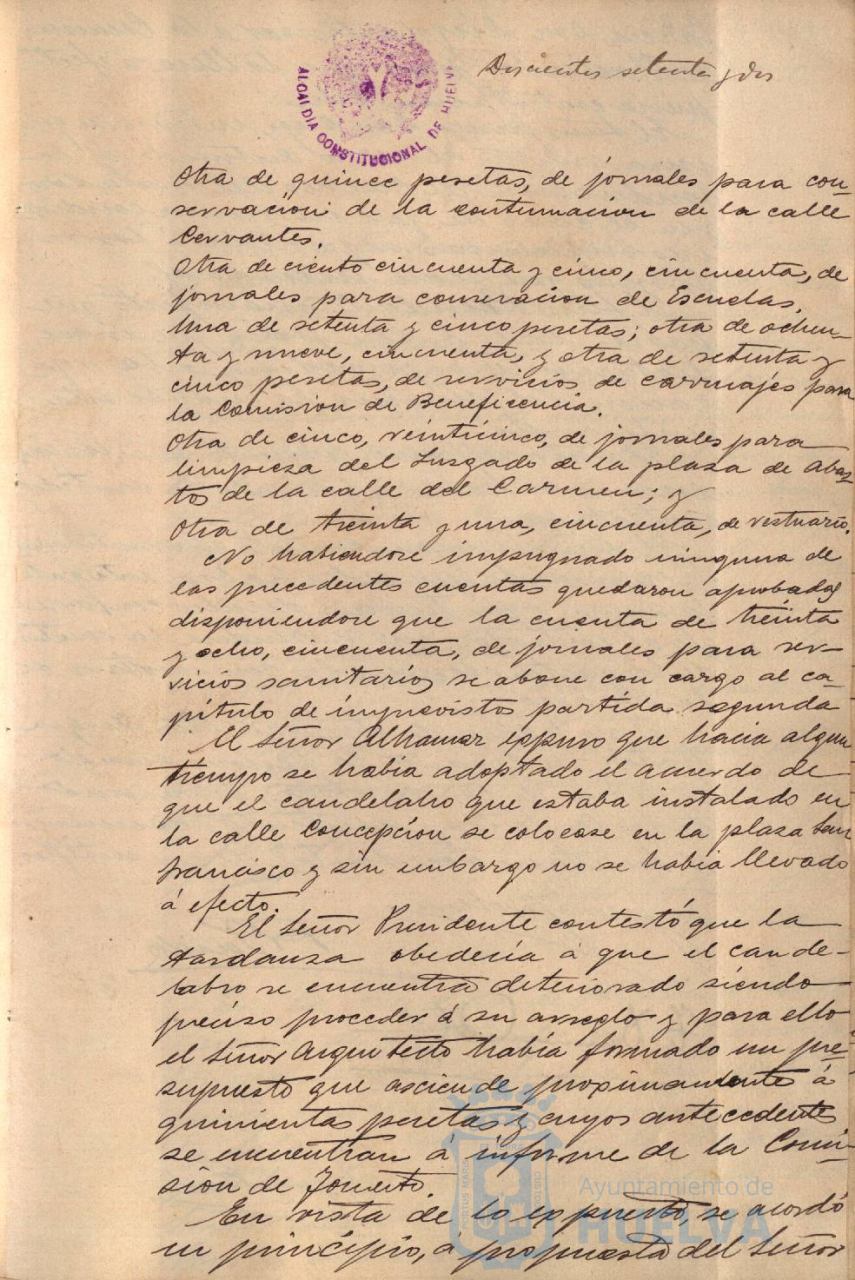 Doscientos setenta y dos
ALCALDIA CONSTITUCIONAL DE HUELVA
Otra de quince pesetas, de jornales para con-
servación de la continuacion de la calle
Cervantes.
Otra de ciento cincuenta y cinco, cincuenta, de
jornales para conservacion de Escuelas.
Una de setenta y cinco pesetas; otra de ochen-
ta y nueve, cincuenta, y otra de setenta y
cinco pesetas, de servicios de carruajes para
la Comision de Beneficencia.
Otra de cinco, veinticinco, de jornales para
limpieza del Juzgado de la plaza de Abas-
tos de la calle del Carmen; y
Otra de treinta y una, cincuenta, de vestuario.
No habiendose impugnado ninguna de
las precedentes cuentas quedaron aprobadas
disponiendose que la cuenta de treinta
y ocho, cincuenta, de jornales para ser-
vicios sanitarios se abone con cargo al ca-
pítulo de imprevistos partida segunda
El Señor Alhamar expuso que hacia algun
tiempo se habia adoptado el acuerdo de
que el candelabro que estaba instalado en
la calle Concepción se colocase en la plaza San
Francisco y sin embargo no se habia llevado
á efecto.
El Señor Presidente contestó que la
tardanza obedecia á que el cande-
labro se encuentra deteriorado siendo
preciso proceder á su arreglo y para ello
el Señor Arquitecto habia formado un pre-
supuesto que asciende proximamente á
quinientas pesetas y cuyos antecedentes
se encuentran á informe de la Comi-
sion de Fomento.
En vista de lo expuesto, se acordó
en principio, á propuesta del Señor
Ayuntamiento de
HUELVA